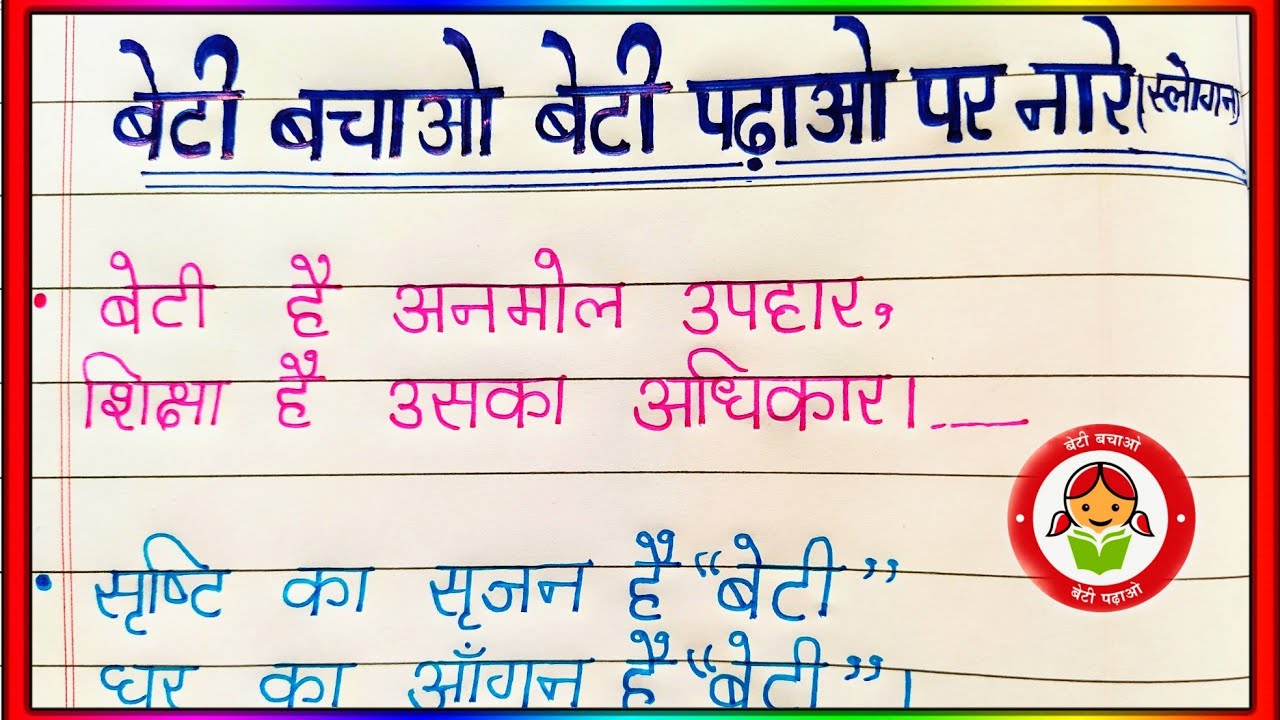 बेटी बचाओ बेटी पढ़ाओ पर नारे (स्लोगन)
• बेटी है अनमोल उपहार,
शिक्षा है उसका अधिकार।
बेटी बचाओ
बेटी पढ़ाओ
• सृष्टि का सृजन है “बेटी”
घर का आँगन है “बेटी”।